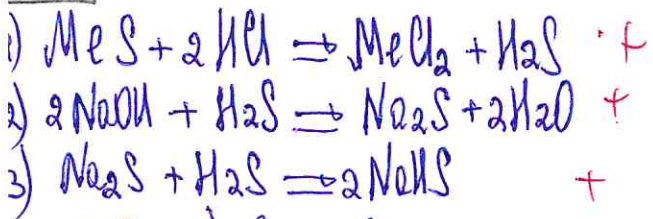 1) MeS + 2HCl ⇒ MeCl₂ + H₂S +
2) 2NaOH + H₂S ⇒ Na₂S + 2H₂O +
3) Na₂S + H₂S ⇒ 2NaHS +